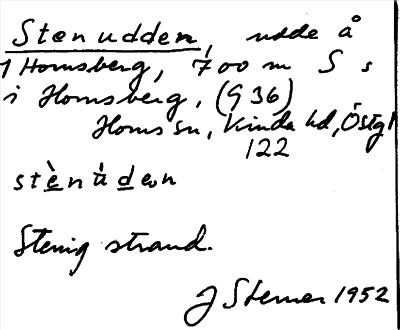 Stenudden, udde å
1 Hornsberg, 700 m S s
i Hornsberg, (G 36)
Horns sn, Kinda hd, Östgl
122
stènúdən
Stenig strand.
J Sterner 1952